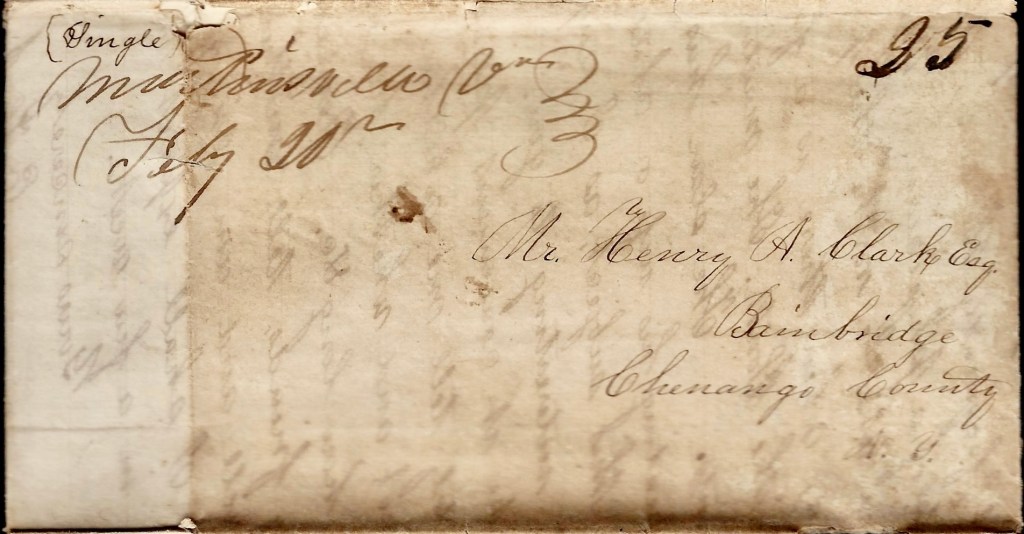 (Single)
25
Martinsville Va
Feby 20th
Mr. Henry A. Clark, Esq.
Bainbridge
Chenango County
N. Y.